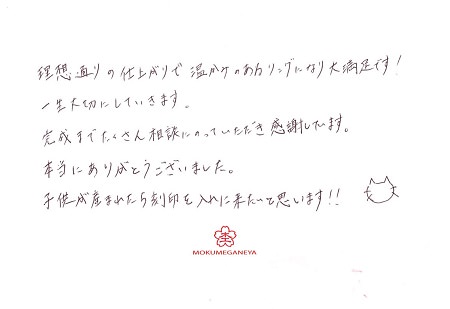 理想通りの仕上がりで温かみのあるリングになり大満足です!
一生大切にしていきます。
完成までたくさん相談にのっていただき感謝しています。
本当にありがとうございました。
子供が産まれたら刻印を入れに来たいと思います!!
MOKUMEGANEYA